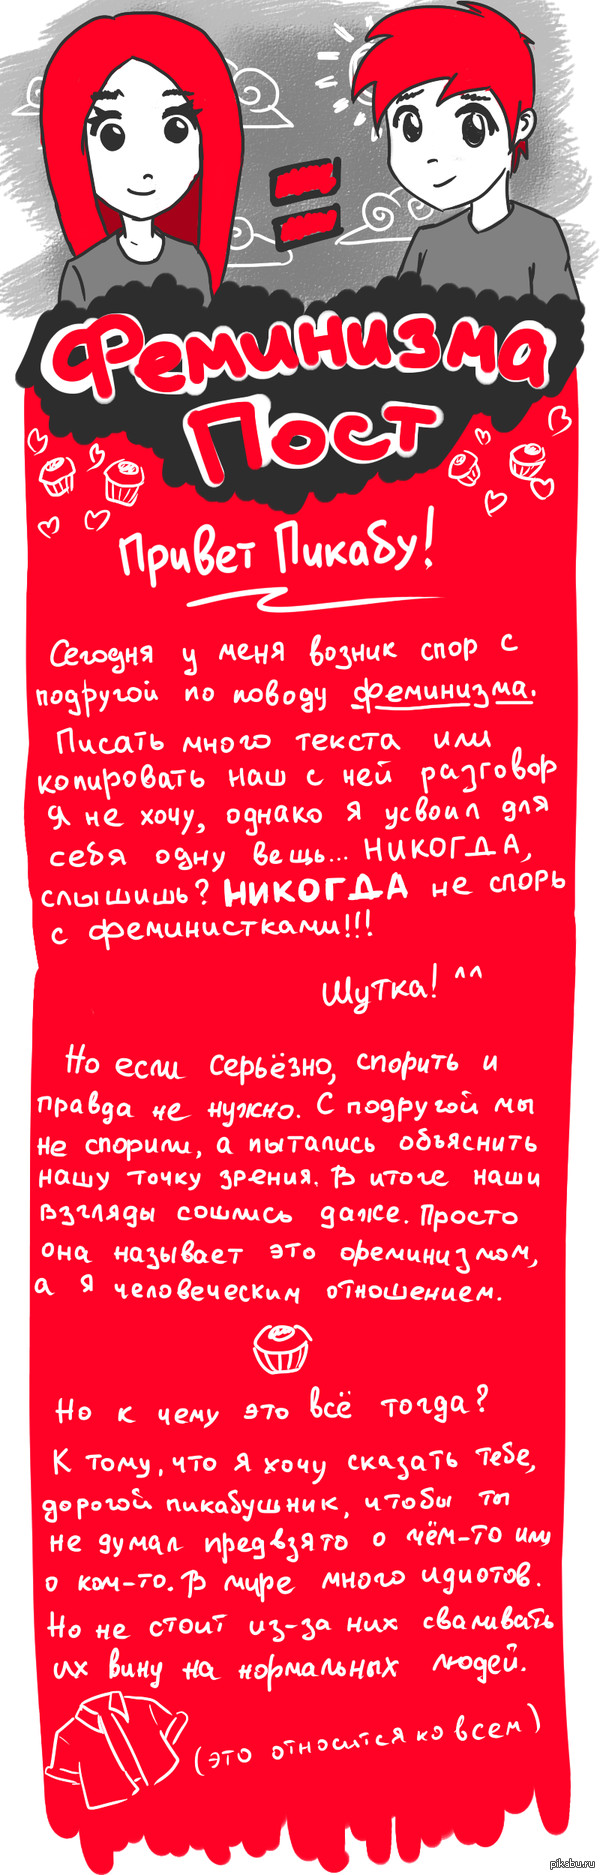 Феминизма
Пост
Привет Пикабу!
Сегодня у меня возник спор с
подругой по поводу феминизма.
Писать много текста или
копировать наш с ней разговор
я не хочу, однако я усвоил для
себя одну вещь... НИКОГДА,
слышишь? НИКОГДА не спорь
с феминистками!!!
Шутка! ^^
Но если серьёзно, спорить и
правда не нужно. С подругой мы
не спорили, а пытались объяснить
нашу точку зрения. В итоге наши
взгляды сошлись даже. Просто
она называет это феминизмом,
а я человеческим отношением.
Но к чему это всё тогда?
К тому, что я хочу сказать тебе,
дорогой пикабушник, чтобы ты
не думал предвзято о чём-то или
о ком-то. В мире много идиотов.
Но не стоит из-за них сваливать
их вину на нормальных людей.
(это относится ко всем)
pikabu.ru